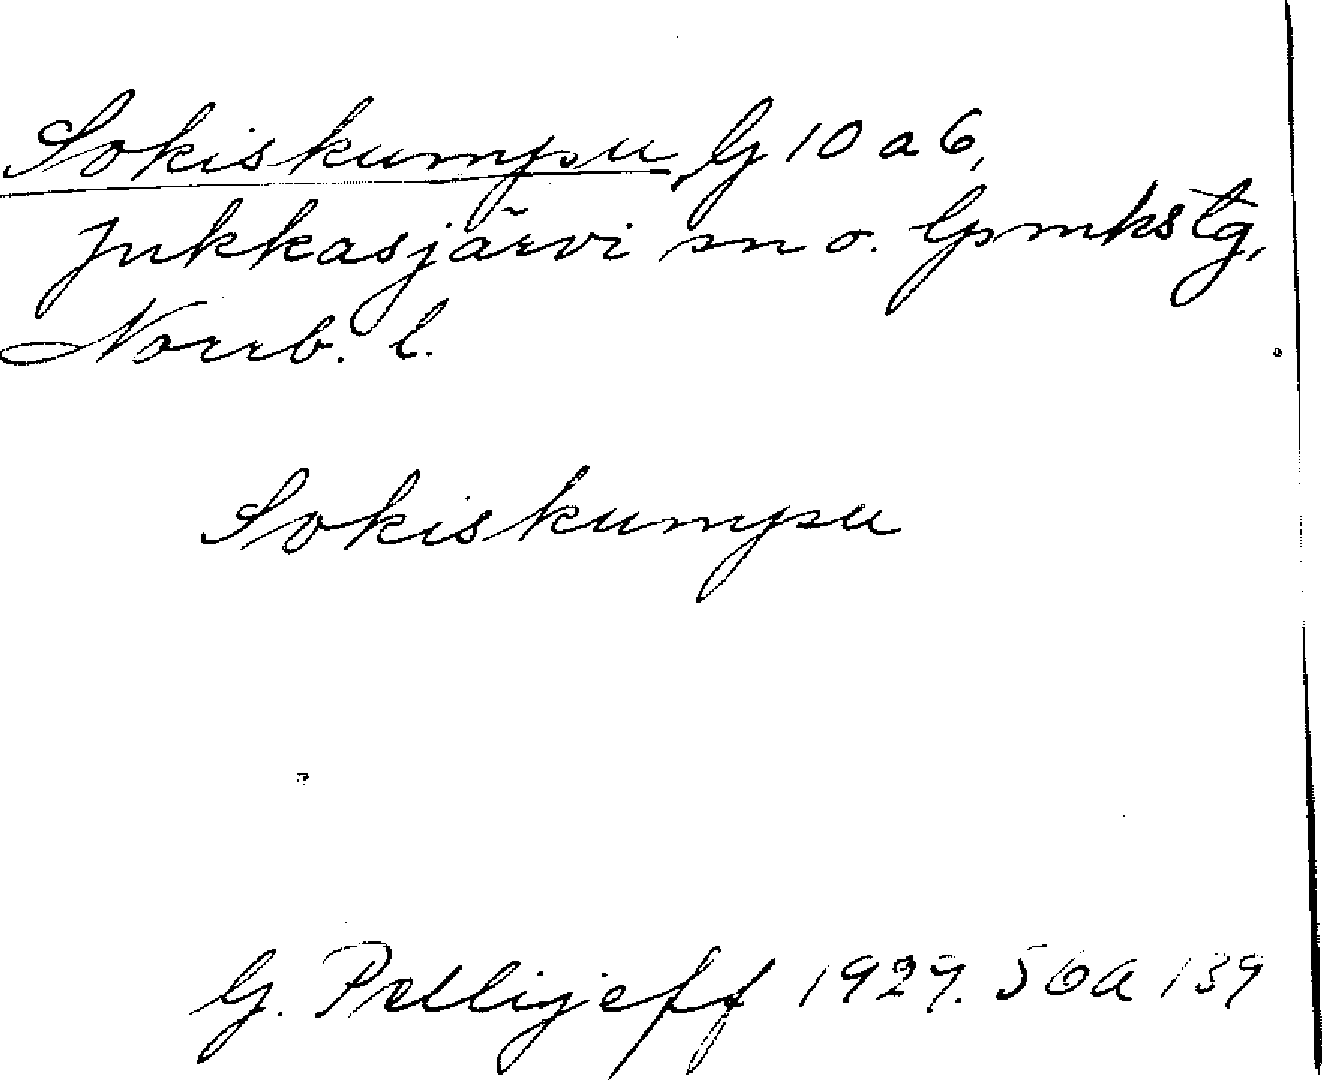 Sokiskumpu, G 10 a 6,
Jukkasjärvi sn o. lpmkstg,
Norrb. l.
Sokiskumpu
G. Pellijeff 1929. 56a 139